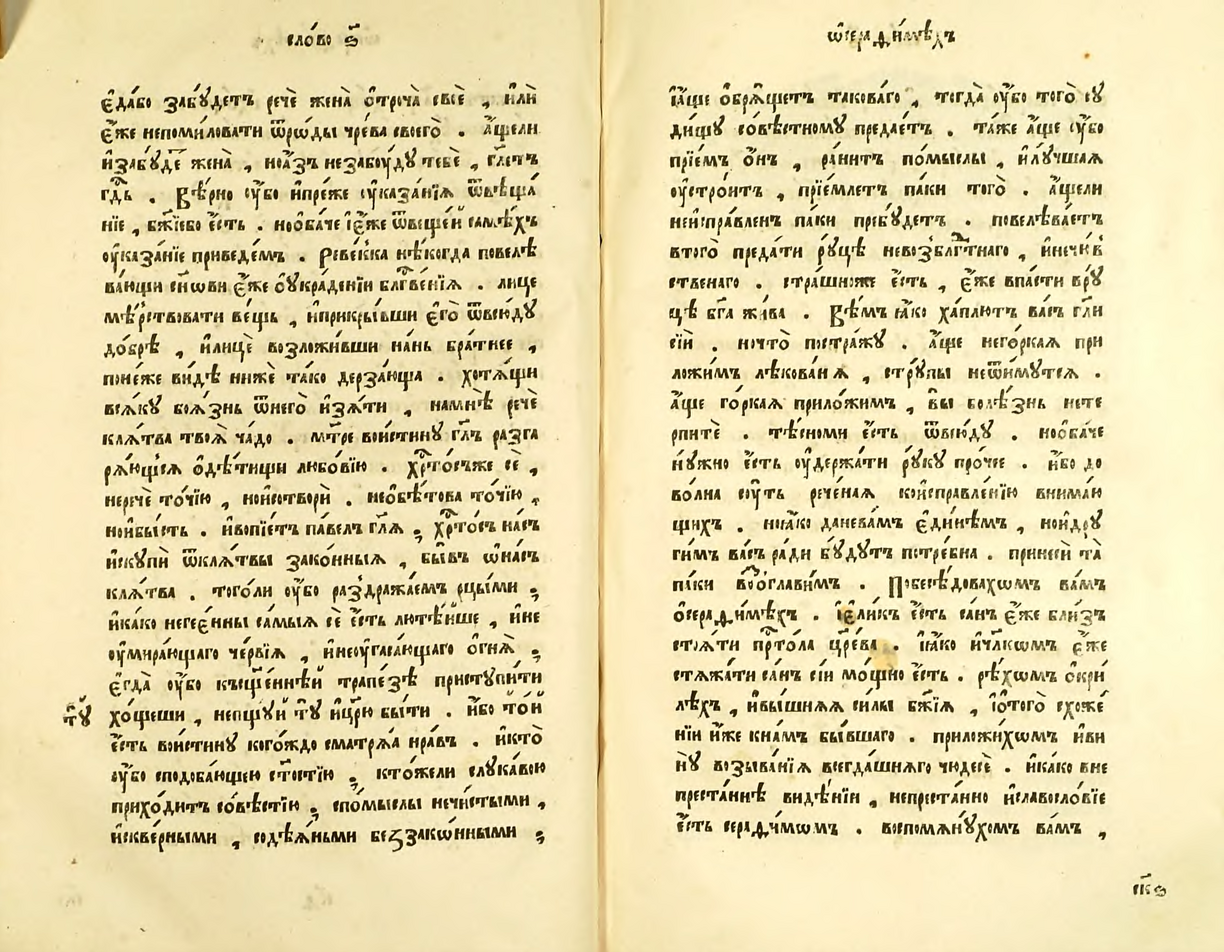 сло́во ѕ҃
є҆да́бо забꙋ́детъ речѐ жена̀ ѻ҆троча̀ своѐ , и҆лѝ
є҆́же непомиловати ѿрѡды чре́ва своего̀ . а҆́щели
и҆забꙋ́де жена̀ , ноа҆́зъ незабоу́дꙋ тебѐ , гл҃етъ
гд҇ь . Вѣ́рно ᲂу҆́бо и҆преже ᲂу҆каза́нїѧ ѿвѣща́
нїе , бж҃їебо є҆́сть . нообаче і҆є҆́же ѿвещей самѣ́хъ
ᲂу҆каза́нїе приведе́мъ . Реве́кка нѣ́когда повелѣ
ва́ющи сн҃ови є҆́же ѻ҆ᲂу҆краде́нїи блг҇ве́нїѧ . лице
мѣ́рствовати ве́щь , и҆прикры́вши є҆го̀ ѿвсю́дꙋ
до́брѣ , и҆лицѐ возложи́вши на́нь бра́тнее ,
поне́же ви́дѣ нижѐ та́ко дерза́юща . хотѧ́щи
всѧ́кꙋ боѧ́знь ѿнего̀ и҆зѧ́ти , намнѣ̀ речѐ
клѧ́тва твоѧ̀ ча́до . мт҃ре вои́стинꙋ гл҃ъ разга
рѧ́ющїсѧ ѻ҆дѣ́тищи любо́вїю . хр҇то́съже сѐ ,
неречѐ то́чїю , нои҆сотворѝ . необѣ́това то́чїю ,
нои҆бы́сть . и҆вопїе́тъ па́велъ гл҃ѧ , хр҇то́съ на́съ
и҆скꙋпѝ ѿклѧ́твы зако́нныѧ , бы́въ ѡ҆на́съ
клѧ́тва . того́ли ᲂу҆́бо раздражаемъ рцы́ми ,
и҆ка́ко негее́нны самы́ѧ сѐ є҆́сть лютѣ́йше , и҆не
ᲂу҆мира́ющаго че́рвїѧ , и҆неᲂу҆гаса́ющаго ѻ҆гнѧ̀ ,
є҆гда̀ ᲂу҆́бо късщ҃е́ннѣй трапе́зѣ пристꙋпи́ти
хо́щеши , непщꙋ́й тꙋ̀ и҆цр҃ю бы́ти . и҆́бо то́й
тꙋ̀
є҆́сть вои́стинꙋ кого́ждо сматрѧ́ѧ нра́въ . и҆кто̀
ᲂу҆́бо сподоба́ющею ст҇остїю , кто́жели слꙋка́вою
прихо́дитъ со́вѣстїю , спо́мыслы нечи́стыми ,
и҆скве́рными , содѣѧ́ньми беззако́нными ,
ѡ҆серафи́мѣхъ
і҆а҆́ще ѻ҆брѧ́щетъ такова́го , тогда̀ ᲂу҆́бо того̀ сꙋ
ди́щꙋ со́вѣстномꙋ предае́тъ . та́же а҆́ще ᲂу҆́бо
прїе́мъ ѻ҆́нъ , ра́нитъ по́мыслы , и҆лꙋ́чшаѧ
ᲂу҆стро́итъ , прїе́млетъ па́ки того̀ . а҆́щели
неи҆спра́вленъ па́ки пребꙋ́детъ . повелѣва́етъ
втого̀ преда́ти рꙋцѣ̀ невозблг҇тнаго , и҆нечꙋ́в
ственаго . стра́шноже є҆́сть , є҆́же впа́сти врꙋ
цѣ̀ бг҃а жи́ва . Вѣ́мъ ꙗ҆́ко ха́плютъ ва́съ гл҃и
сїѝ . но́что̀ постра́жꙋ . а҆́ще него́ркаѧ при
ложи́мъ лѣкова́нїѧ , стрꙋ́пы неѿи́мꙋтсѧ .
а҆́ще го́ркаѧ приложи́мъ , вы̀ болѣ́знь нете
рпитѐ . тѣ́сноми є҆́сть ѿвсю́дꙋ . нообаче
нꙋ́жно є҆́сть ᲂу҆держа́ти рꙋ́кꙋ про́чее . и҆́бо до
во́лна сꙋ́ть рече́наѧ кои҆справле́нїю внима́ю
щихъ . ноꙗ҆́ко даневамъ є҆ди́нѣмъ , нои҆дрꙋ
ги́мъ ва́съ ра́ди бꙋ́дꙋтъ потре́бна . принеси́ та̀
па́ки воо҆гла́вимъ . Побесѣ́довахѡмъ ва́мъ
ѻ҆серафи́мѣхъ . і҆є҆ли́къ є҆́сть са́нъ є҆́же бли́зъ
стоѧ́ти пр҇то́ла цр҃е́ва . і҆ꙗ҆́ко и҆чл҃кѡмъ є҆́же
стѧжа́ти са́нъ сі́и мо́щно є҆́сть . рѣ́хѡмъ ѻ҆кри
лѣ́хъ , и҆вы́шнѧѧ си́лы бж҃їѧ , і҆ѻ҆того̀ схоже́
нїи и҆́же кна́мъ бы́вшаго . приложи́хѡмъ и҆ви
нꙋ̀ возыва́нїѧ всегда́шнѧго чюдесѐ . и҆ка́ко вне
преста́ннѣ ви́дѣ́нїи , непреста́нно и҆славосло́вїе
є҆́сть серафи́мѡмъ . воспомѧнꙋ́хомъ ва́мъ ,